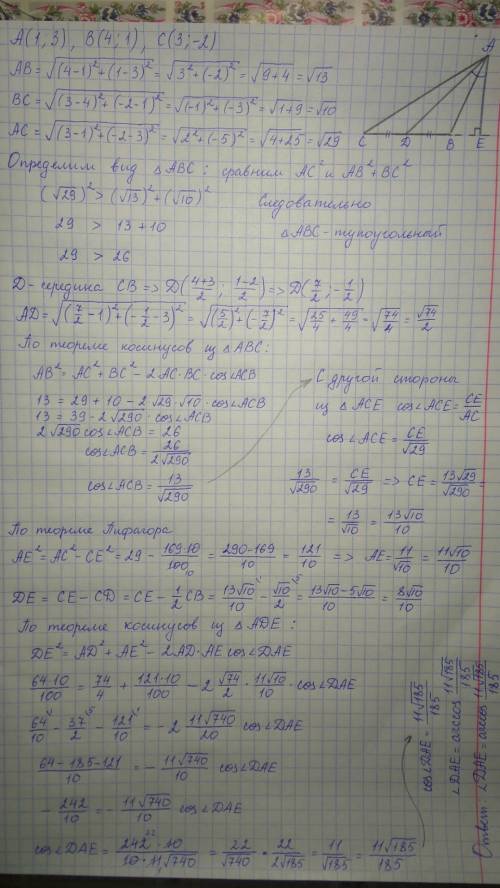 A(1;3), B(4;1), C(3;-2)
AB=√((4-1)²+(1-3)²)=√(3²+(-2)²)=√(9+4)=√13
BC=√((3-4)²+(-2-1)²)=√((-1)²+(-3)²)=√(1+9)=√10
AC=√((3-1)²+(-2-3)²)=√(2²+(-5)²)=√(4+25)=√29
A
C D B E
Определим вид △ABC: сравним AC² и AB²+BC²
(√29)² > (√13)²+(√10)² Следовательно
29 > 13+10 △ABC-тупоугольный
29 > 26
D- середина CB => D((4+3)/2; (1-2)/2) => D(7/2; -1/2)
AD=√((7/2-1)²+(-1/2-3)²)=√((5/2)²+(-7/2)²)=√(25/4+49/4)=√(74/4)=√74/2
По теореме косинусов из △ABC:
AB²=AC²+BC²-2AC·BC·cos∠ACB
13=29+10-2√29·√10·cos∠ACB
13=39-2√290·cos∠ACB
2√290cos∠ACB=26
cos∠ACB=26/(2√290)
cos∠ACB=13/√290
С другой стороны
из △ACE cos∠ACE=CE/AC
cos∠ACE=CE/√29
13/√290=CE/√29 => CE=13√29/√290=
=13/√10=13√10/10
По теореме Пифагора
AE²=AC²-CE²=29-169·10/100 10=(290-169)/10=121/10 => AE=11/√10=11√10/10
DE=CE-CD=CE-1/2CB=13√10/10-√10/2=(13√10-5√10)/10=8√10/10
По теореме косинусов из △ADE:
DE²=AD²+AE²-2AD·AE cos∠DAE
64·10/100=74/4+121·10/100-2·√74/2·11√10/10·cos∠DAE
64/10-37/2-121/10=-2·11√740/20 cos∠DAE
(64-185-121)/10=-11√740/10 cos∠DAE
-242/10=-11√740/10 cos∠DAE
cos∠DAE=242·10/(10·11√740)=22/√740=22/(2√185)=11/√185=11√185/185
cos∠DAE=11√185/185
∠DAE=arccos 11√185/185
Ответ: ∠DAE=arccos 11√185/185